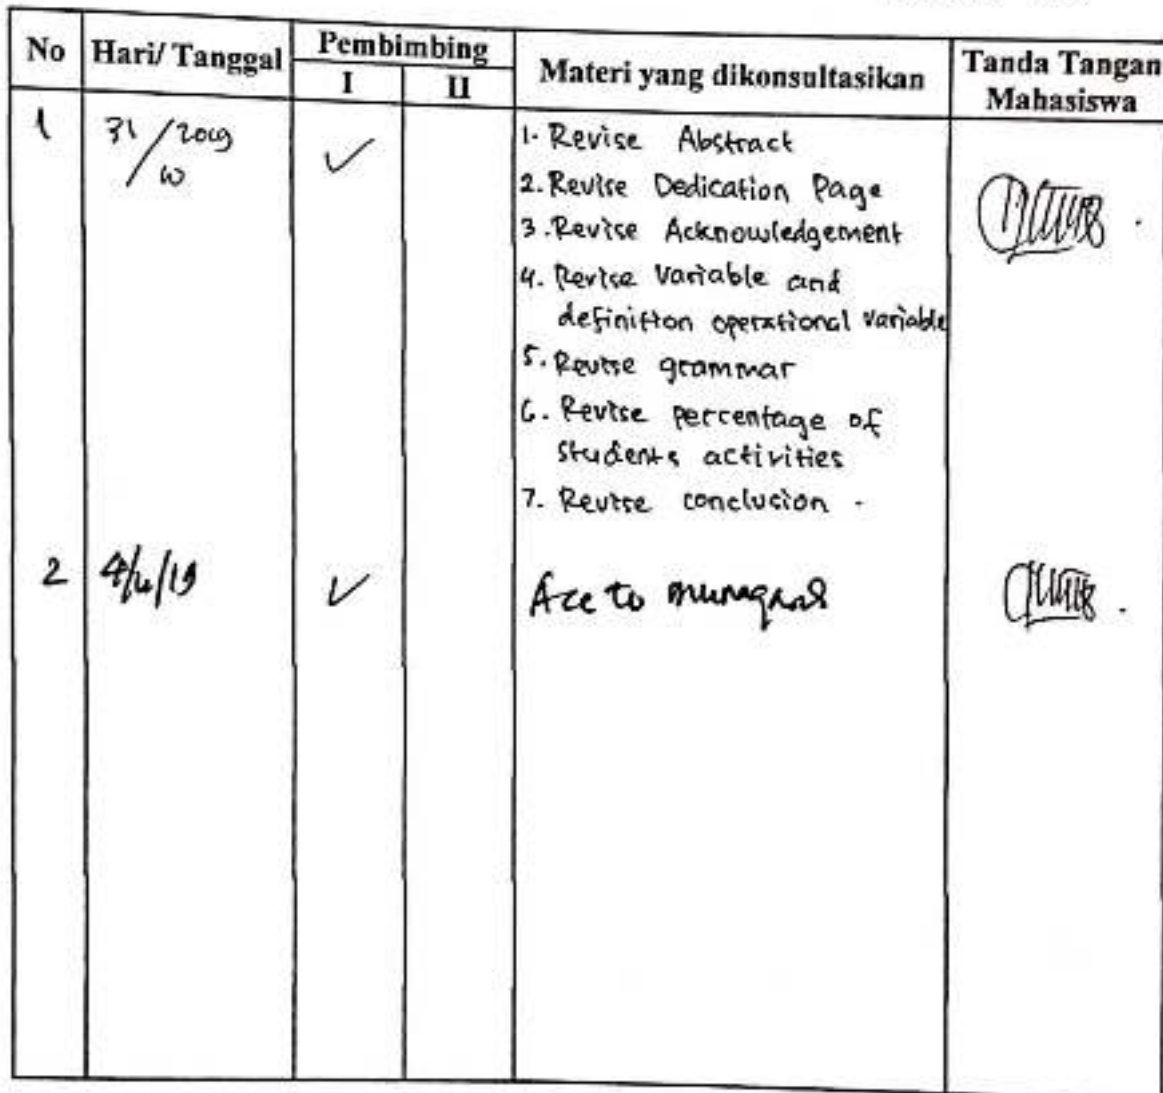 No Hari/ Tanggal Pembimbing Materi yang dikonsultasikan Tanda Tangan
I II Mahasiswa
1 31/2019
10
1. Revise Abstract
2. Revise Dedication Page
3. Revise Acknowledgement
4. Revise Variable and
definition operational variable
5. Revise grammar
6. Revise percentage of
students activities
7. Revise conclusion.
2 Acc to munaqasah